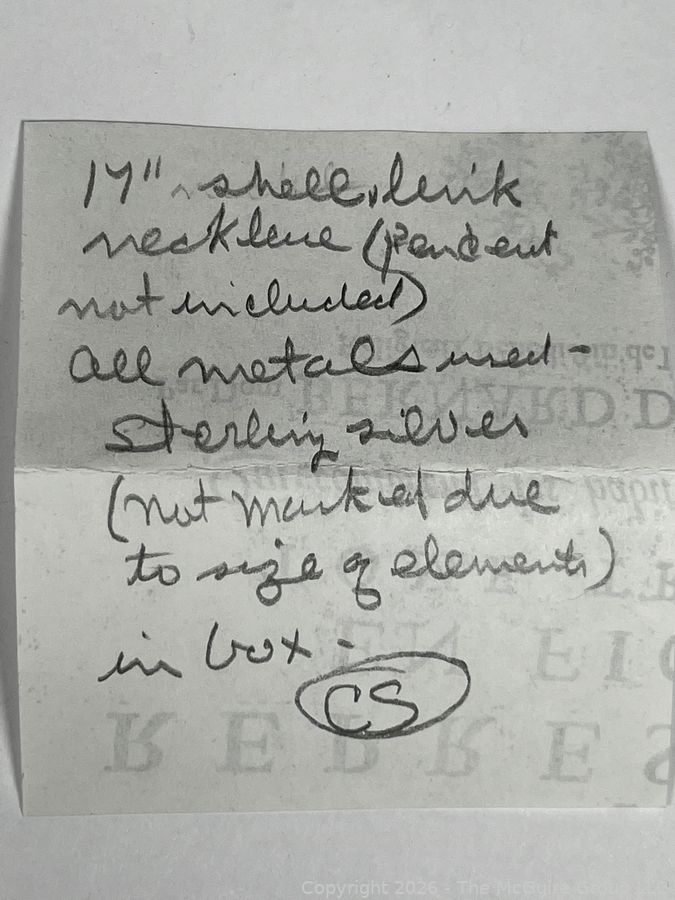 17" shell link
necklace (pendent
not included)
All metals used -
sterling silver
(not marked due
to size of elements)
in box -
CS
Copyright 2026 - The McGuire Group LLC